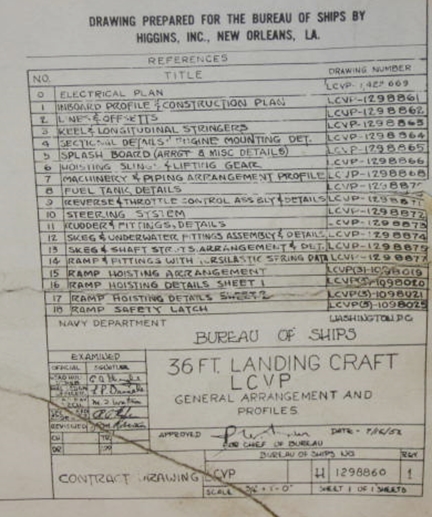 DRAWING PREPARED FOR THE BUREAU OF SHIPS BY
HIGGINS, INC., NEW ORLEANS, LA.
REFERENCES
NO. TITLE DRAWING NUMBER
0 ELECTRICAL PLAN LCVP
1 INBOARD PROFILE & CONSTRUCTION PLAN LCVP-1298861
2 LINES & OFFSETTS LCVP-1298862
3 KEEL & LONGITUDINAL STRINGERS LCVP-1298863
4 SECTIONAL DETAILS ENGINE MOUNTING DET. LCVP-1298864
5 SPLASH BOARD (ARRGT & MISC DETAILS) LCVP-1298865
6 HOISTING SLING & LIFTING GEAR LCVP-1298866
7 MACHINERY & PIPING ARRANGEMENT PROFILE LCVP-1298868
8 FUEL TANK DETAILS LCVP-129887
9 REVERSE & THROTTLE CONTROL ASSBLY & DETAILS LCVP-1298871
10 STEERING SYSTEM LCVP-1298872
11 RUDDER & FITTINGS, DETAILS LCVP-1298873
12 SKEG & UNDERWATER FITTINGS ASSEMBLY & DETAILS LCVP-1298874
13 SKEG & SHAFT STRUTS, ARRANGEMENT & DET. LCVP-1298875
14 RAMP & FITTINGS WITH TORSILASTIC SPRING DATA LCVP-1298877
15 RAMP HOISTING ARRANGEMENT LCVP(3)-1098019
16 RAMP HOISTING DETAILS SHEET 1 LCVP(3)-1098020
17 RAMP HOISTING DETAILS SHEET 2 LCVP(3)-1098021
18 RAMP SAFETY LATCH LCVP(3)-1098025
NAVY DEPARTMENT WASHINGTON, DC
BUREAU OF SHIPS
EXAMINED
OFFICIAL SIGNATURE
REVIEWED
36 FT. LANDING CRAFT
LCVP
GENERAL ARRANGEMENT AND
PROFILES
APPROVED DATE-
FOR CHIEF OF BUREAU
BUREAU OF SHIPS NO. REV
CONTRACT DRAWING LCVP H 1298860 1
SCALE SHEET 1 OF 1 SHEETS